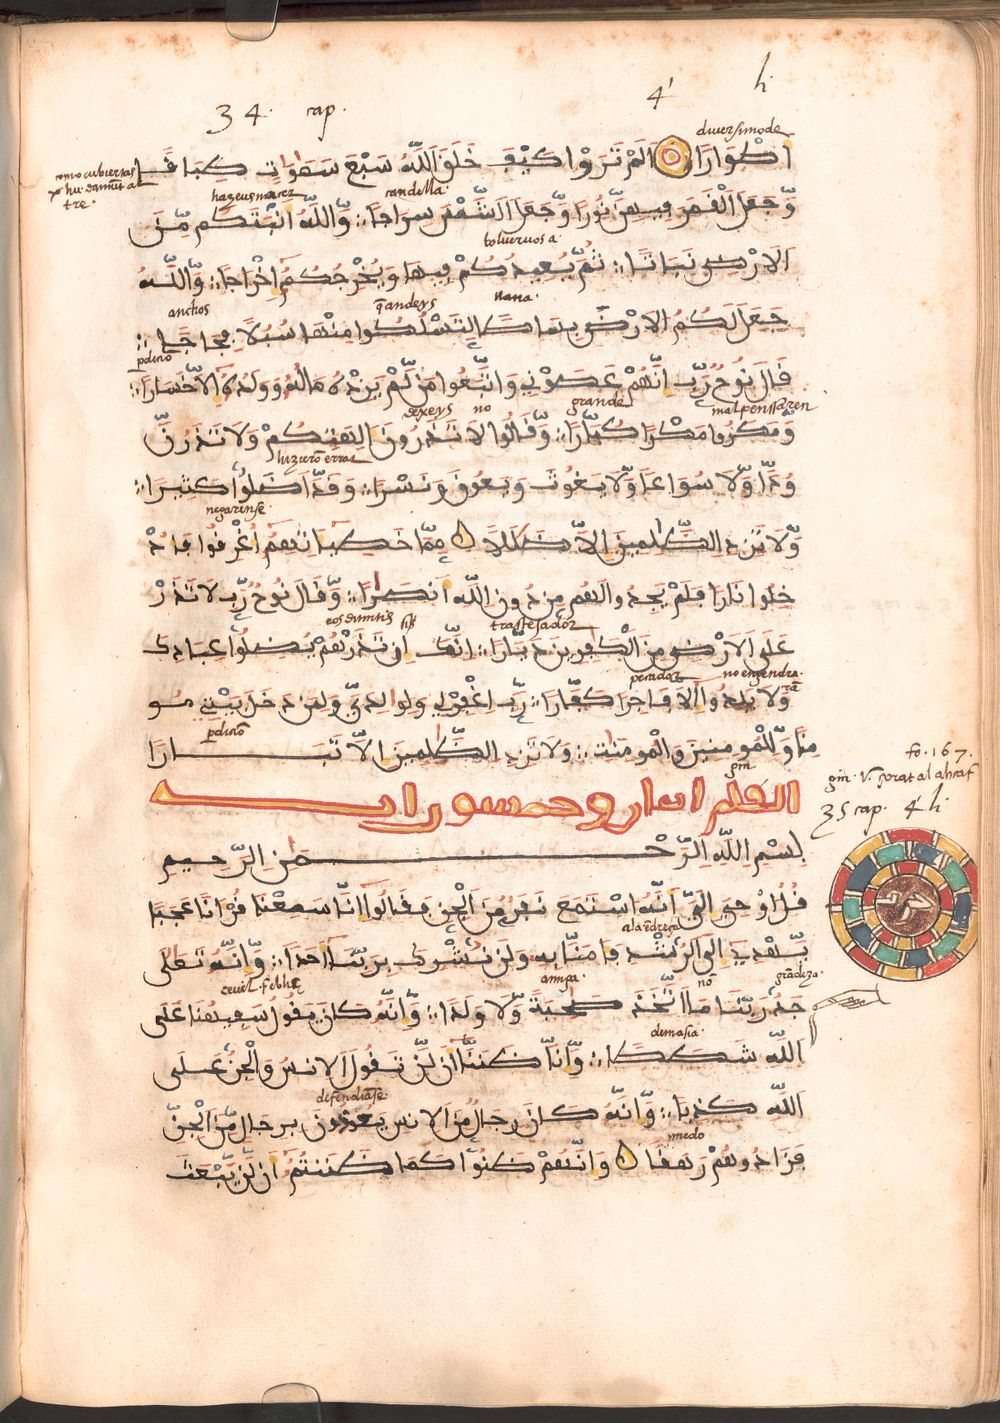 34. cap. 4 h
diversimode
أَطْوَارًا أَلَمْ تَرَوْا كَيْفَ خَلَقَ اللَّهُ سَبْعَ سَمَٰوَٰتٍ طِبَاقًا
como cubiertas
tre
hazeus nacer candella
وَّجَعَلَ الْقَمَرَ فِيهِنَّ نُورًا وَّجَعَلَ الشَّمْسَ سِرَاجًا وَّاللَّهُ أَنْبَتَكُم مِّنَ
bolveruos a
الْأَرْضِ نَبَاتًا ثُمَّ يُعِيدُكُمْ فِيهَا وَيُخْرِجُكُمْ إِخْرَاجًا وَّاللَّهُ
anchos q̃ andeys
جَعَلَ لَكُمُ الْأَرْضَ بِسَاطًا لِّتَسْلُكُوا مِنْهَا سُبُلًا فِجَاجًا
pdicio
قَالَ نُوحٌ رَّبِّ إِنَّهُمْ عَصَوْنِي وَاتَّبَعُوا مَن لَّمْ يَزِدْهُ مَالُهُ وَوَلَدُهُ إِلَّا خَسَارًا
dexeys no grande mal penssaren
وَّمَكَرُوا مَكْرًا كُبَّارًا وَّقَالُوا لَا تَذَرُنَّ ءَالِهَتَكُمْ وَلَا تَذَرُنَّ
hizierõ errar
وُدًّا وَّلَا سُوَاعًا وَّلَا يَغُوثَ وَيَعُوقَ وَنَسْرًا وَقَدْ أَضَلُّوا كَثِيرًا
negarense
وَّلَا تَزِدِ الظَّٰلِمِينَ إِلَّا ضَلَٰلًا مِّمَّا خَطِيـَٰٔتِهِمْ أُغْرِقُوا فَأُدْ
خِلُوا نَارًا فَلَمْ يَجِدُوا لَهُم مِّن دُونِ اللَّهِ أَنصَارًا وَّقَالَ نُوحٌ رَّبِّ لَا تَذَرْ
trastejador
عَلَى الْأَرْضِ مِنَ الْكَٰفِرِينَ دَيَّارًا إِنَّكَ إِن تَذَرْهُمْ يُضِلُّوا عِبَادَكَ
pecador no engendra
rã
وَلَا يَلِدُوا إِلَّا فَاجِرًا كَفَّارًا رَّبِّ اغْفِرْ لِي وَلِوَالِدَيَّ وَلِمَن دَخَلَ بَيْتِيَ مُو
pdiciõ
مِنًا وَّلِلْمُومِنِينَ وَالْمُومِنَٰتِ وَلَا تَزِدِ الظَّٰلِمِينَ إِلَّا تَبَارًا
fo. 167.
35 cap. 4 h
بِسْمِ اللَّهِ الرَّحْمَٰنِ الرَّحِيمِ
قُلْ أُوحِيَ إِلَيَّ أَنَّهُ اسْتَمَعَ نَفَرٌ مِّنَ الْجِنِّ فَقَالُوا إِنَّا سَمِعْنَا قُرْءَانًا عَجَبًا
يَّهْدِي إِلَى الرُّشْدِ فَـَٔامَنَّا بِهِ وَلَن نُّشْرِكَ بِرَبِّنَا أَحَدًا وَّإِنَّهُ تَعَٰلَى
amiga nõ grãdeza
جَدُّ رَبِّنَا مَا اتَّخَذَ صَٰحِبَةً وَّلَا وَلَدًا وَّإِنَّهُ كَانَ يَقُولُ سَفِيهُنَا عَلَى
demasia
اللَّهِ شَطَطًا وَّإِنَّا ظَنَنَّا أَن لَّن تَقُولَ الْإِنسُ وَالْجِنُّ عَلَى
defendiase
اللَّهِ كَذِبًا وَّإِنَّهُ كَانَ رِجَالٌ مِّنَ الْإِنسِ يَعُوذُونَ بِرِجَالٍ مِّنَ الْجِنِّ
miedo
فَزَادُوهُمْ رَهَقًا وَإِنَّهُمْ ظَنُّوا كَمَا ظَنَنتُمْ أَن لَّن يَّبْعَثَ